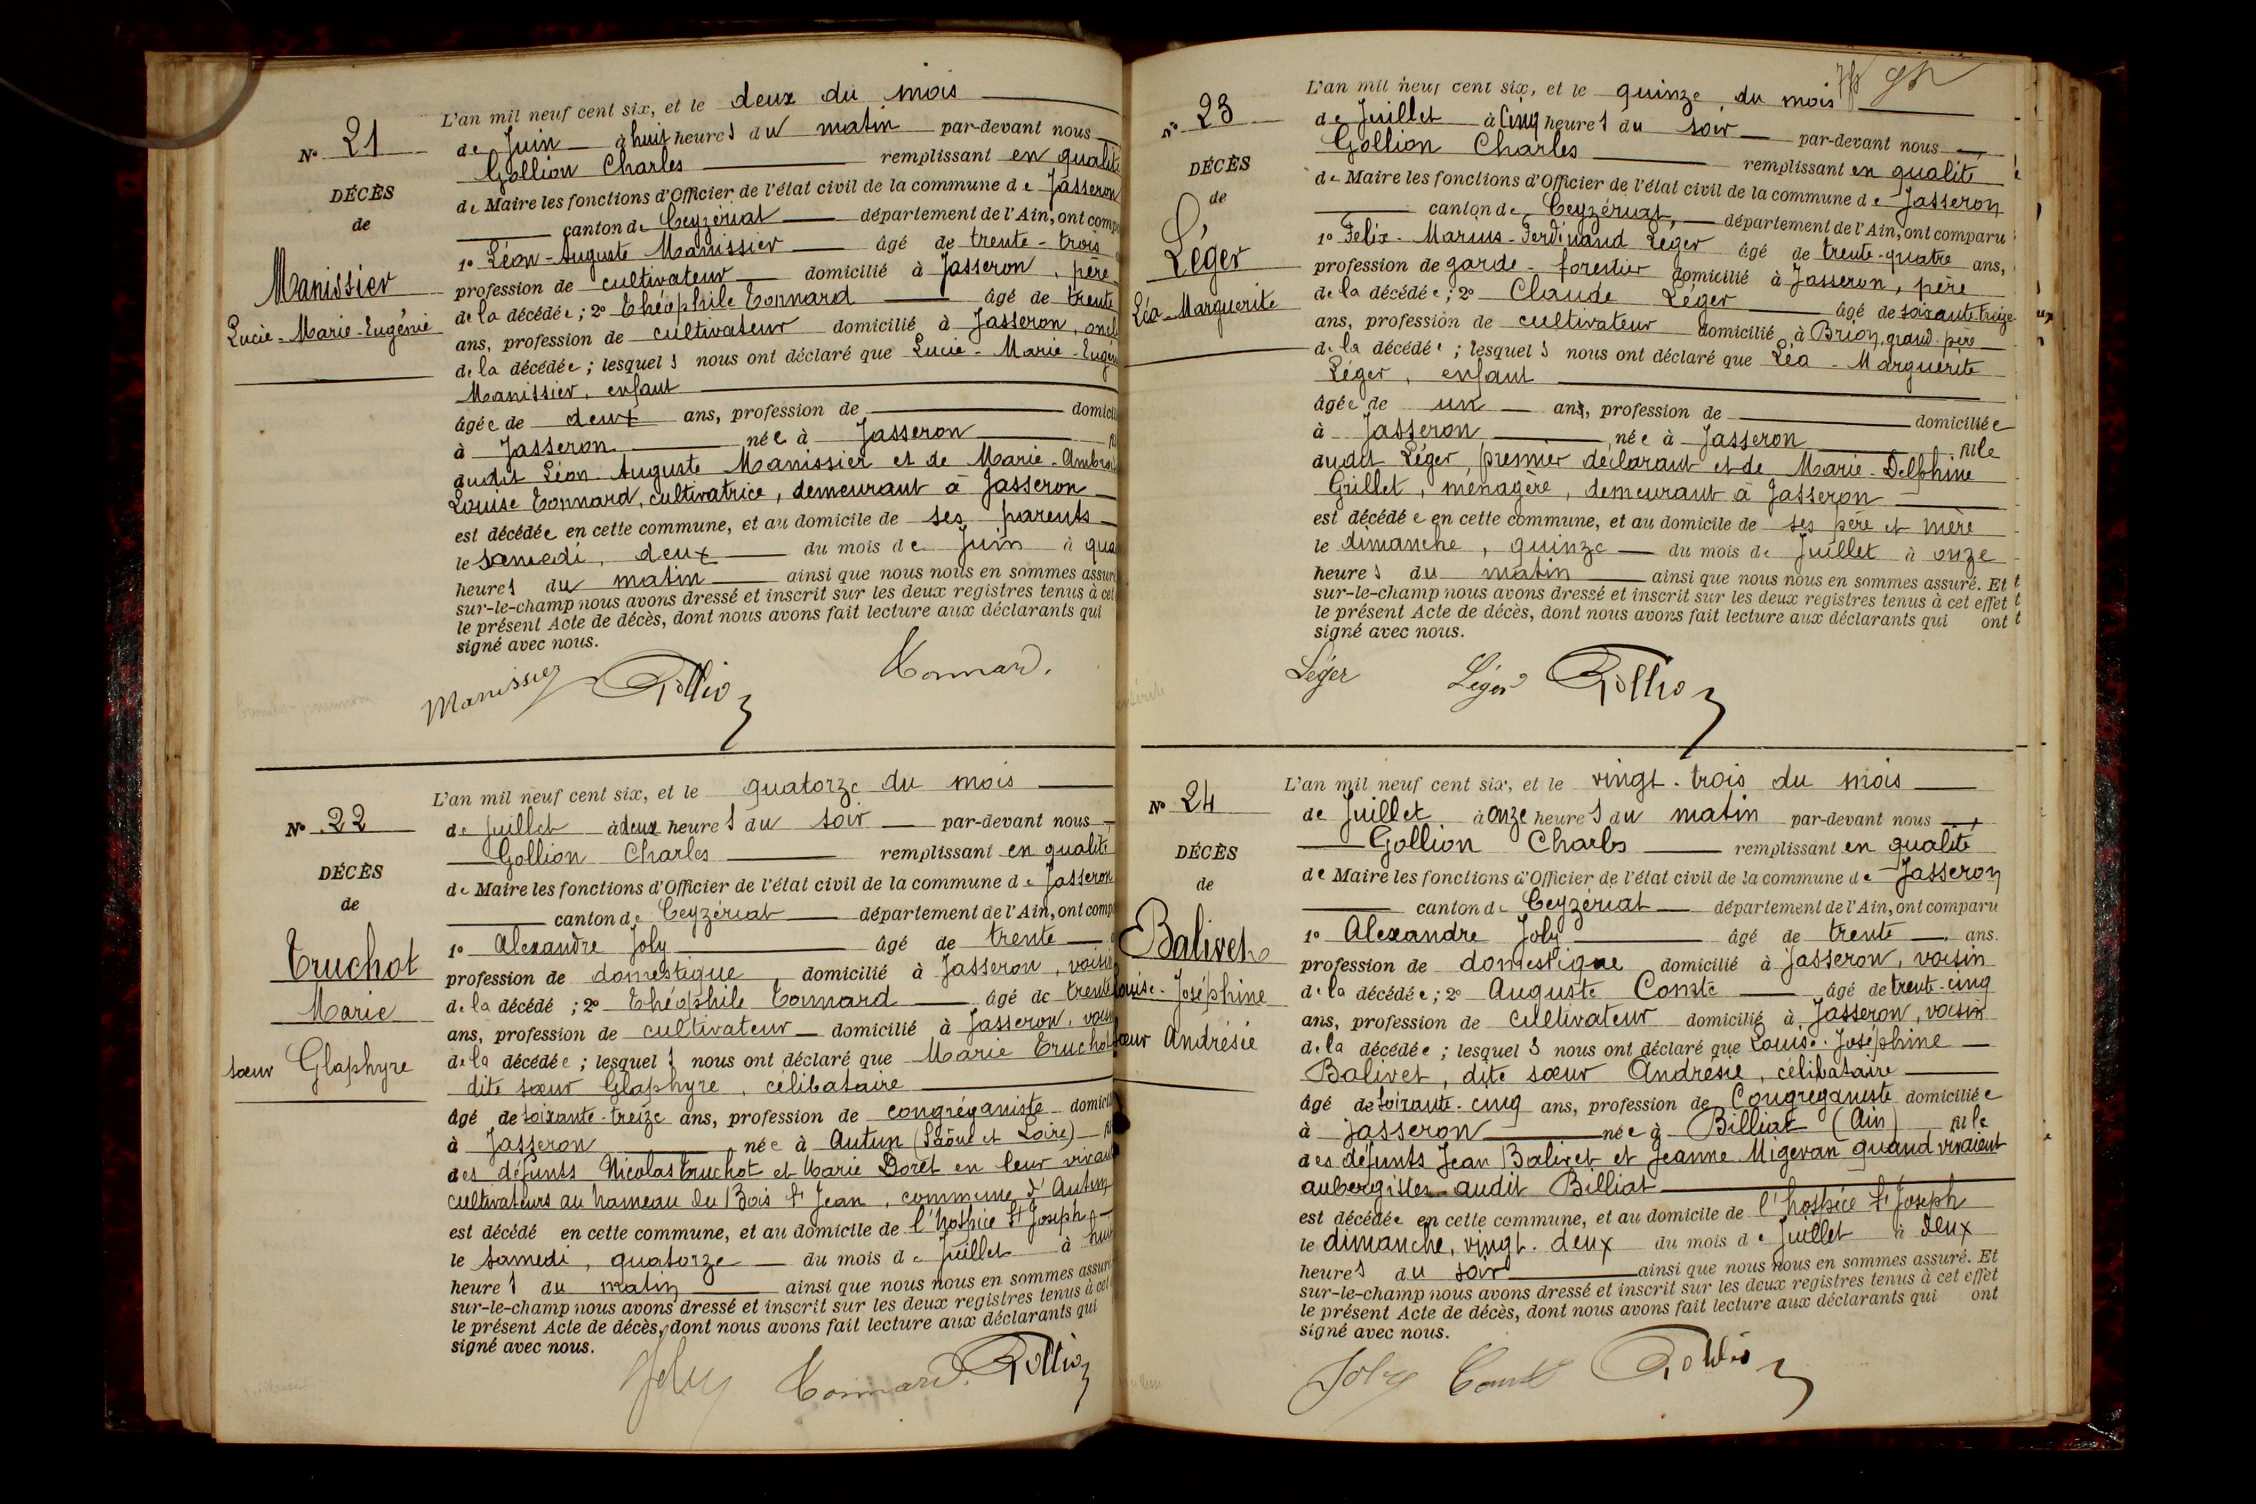 N° 21
DÉCÈS
de
Manissier
Lucie-Marie-Eugénie
L'an mil neuf cent six, et le deux du mois
de Juin à huit heures du matin par-devant nous
Gollion Charles remplissant en qualité
de Maire les fonctions d'Officier de l'état civil de la commune de Jasseron
canton de Ceyzériat département de l'Ain, ont comp
1° Léon-Auguste Manissier âgé de trente-trois
profession de cultivateur domicilié à Jasseron, père
de la décédée; 2° Théophile Tonnard âgé de trente
ans, profession de cultivateur domicilié à Jasseron, oncle
de la décédée; lesquels nous ont déclaré que Lucie-Marie-Eugén
Manissier, enfant
âgée de deux ans, profession de domicili
à Jasseron née à Jasseron fi
dudit Léon-Auguste Manissier et de Marie-Ambrois
Louise Tonnard, cultivatrice, demeurant à Jasseron
est décédée en cette commune, et au domicile de ses parents
le samedi, deux du mois de Juin à qua
heures du matin ainsi que nous nous en sommes assuré
sur-le-champ nous avons dressé et inscrit sur les deux registres tenus à cet
le présent Acte de décès, dont nous avons fait lecture aux déclarants qui
signé avec nous.
Manissier Gollion Tonnard.
N° 22
DÉCÈS
de
Truchot
Marie
sœur Glaphyre
L'an mil neuf cent six, et le quatorze du mois
de Juillet à deux heures du soir par-devant nous
Gollion Charles remplissant en qualité
de Maire les fonctions d'Officier de l'état civil de la commune de Jasseron
canton de Ceyzériat département de l'Ain, ont comp
1° Alexandre Joly âgé de trente
profession de domestique domicilié à Jasseron, voisin
de la décédé ; 2° Théophile Tonnard âgé de trente
ans, profession de cultivateur domicilié à Jasseron, voisin
de la décédée; lesquels nous ont déclaré que Marie Truchot
dite sœur Glaphyre, célibataire
âgé de soixante-treize ans, profession de congréganiste domicili
à Jasseron née à Autun (Saône et Loire) fi
des défunts Nicolas Truchot et Marie Doret en leur vivant
cultivateurs au hameau du Bois St Jean, commune d'Autun
est décédé en cette commune, et au domicile de l'hospice St Joseph
le samedi, quatorze du mois de Juillet à huit
heures du matin ainsi que nous nous en sommes assuré
sur-le-champ nous avons dressé et inscrit sur les deux registres tenus à cet
le présent Acte de décès, dont nous avons fait lecture aux déclarants qui
signé avec nous.
Joly Tonnard. Gollion
N° 23
DÉCÈS
de
Léger
Léa-Marguerite
L'an mil neuf cent six, et le quinze, du mois
de Juillet à cinq heures du soir par-devant nous
Gollion Charles remplissant en qualité
de Maire les fonctions d'Officier de l'état civil de la commune de Jasseron
canton de Ceyzériat, département de l'Ain, ont comparu
1° Félix-Marius-Ferdinand Léger âgé de trente-quatre ans,
profession de garde-forestier domicilié à Jasseron, père
de la décédée; 2° Claude Léger âgé de soixante-treize
ans, profession de cultivateur domicilié à Brion, grand-père
de la décédée; lesquels nous ont déclaré que Léa-Marguerite
Léger, enfant
âgée de un ans, profession de domiciliée
à Jasseron née à Jasseron fille
dudit Léger, premier déclarant et de Marie-Delphine
Grillet, ménagère, demeurant à Jasseron
est décédée en cette commune, et au domicile de ses père et mère
le dimanche, quinze du mois de Juillet à onze
heures du matin ainsi que nous nous en sommes assuré. Et
sur-le-champ nous avons dressé et inscrit sur les deux registres tenus à cet effet
le présent Acte de décès, dont nous avons fait lecture aux déclarants qui ont
signé avec nous.
Léger Léger Gollion
N° 24
DÉCÈS
de
Balivet
Louise-Joséphine
sœur Andrésie
L'an mil neuf cent six, et le vingt-trois du mois
de Juillet à onze heures du matin par-devant nous
Gollion Charles remplissant en qualité
de Maire les fonctions d'Officier de l'état civil de la commune de Jasseron
canton de Ceyzériat département de l'Ain, ont comparu
1° Alexandre Joly âgé de trente ans.
profession de domestique domicilié à Jasseron, voisin
de la décédée; 2° Auguste Comte âgé de trente-cinq
ans, profession de cultivateur domicilié à Jasseron, voisin
de la décédée; lesquels nous ont déclaré que Louise-Joséphine
Balivet, dite sœur Andrésie, célibataire
âgé de soixante-cinq ans, profession de Congréganiste domiciliée
à Jasseron née à Billiat (Ain) fille
des défunts Jean Balivet et Jeanne Migevan quand vivaient
aubergistes audit Billiat
est décédée en cette commune, et au domicile de l'hospice St Joseph
le dimanche, vingt-deux du mois de Juillet à deux
heures du soir ainsi que nous nous en sommes assuré. Et
sur-le-champ nous avons dressé et inscrit sur les deux registres tenus à cet effet
le présent Acte de décès, dont nous avons fait lecture aux déclarants qui ont
signé avec nous.
Joly Comte Gollion